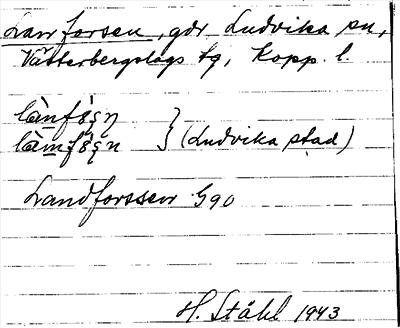 Lanforsen, gdr Ludvika sn,
Västerbergslags tg, Kopp. l.
} (Ludvika stad)
Landforssen G90
H. Ståhl 1943